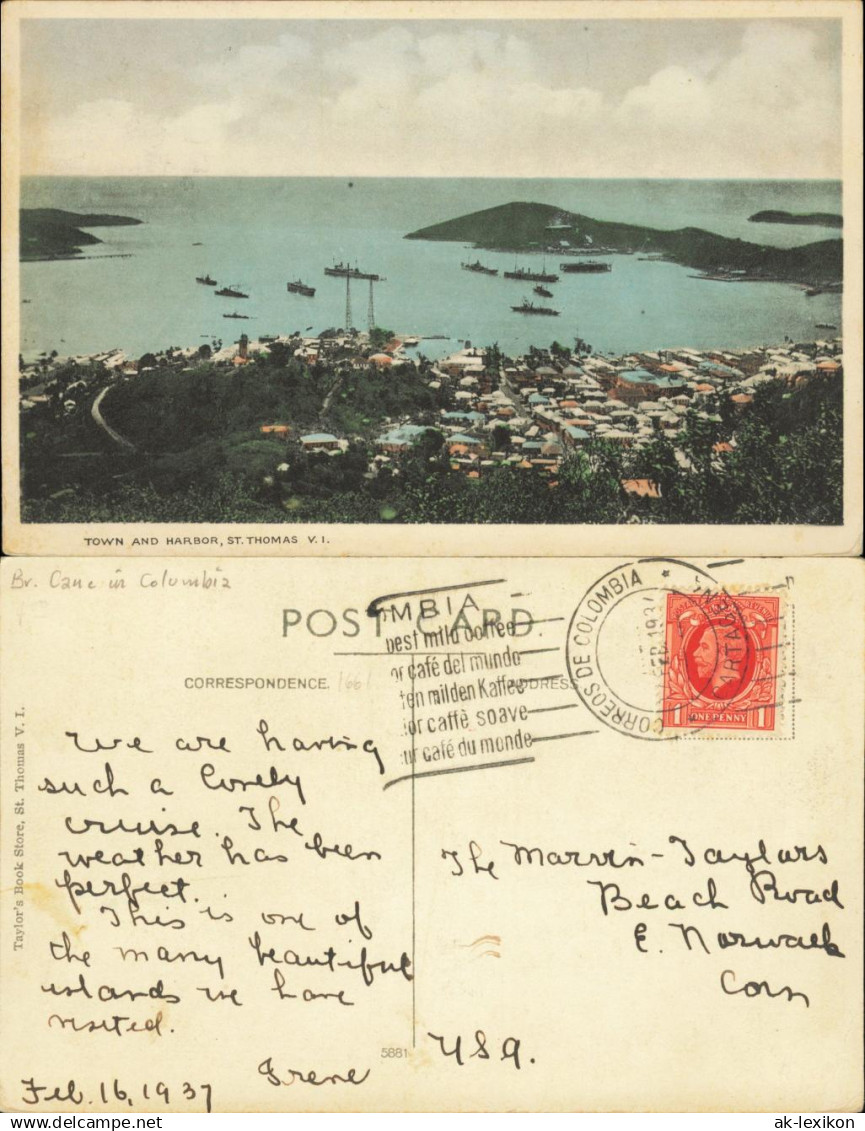 TOWN AND HARBOR, ST. THOMAS V. I.
Br. Cane in Columbia
POST CARD.
CORRESPONDENCE.
ADDRESS
MBIA
best mild coffee
or café del mundo
ten milden Kaffee
ior caffè soave
ur café du monde
CORREOS DE COLOMBIA
FEB 1937
ONE PENNY
1 1
Taylor's Book Store, St. Thomas V. I.
We are having
such a lovely
cruise. The
weather has been
perfect.
This is one of
the many beautiful
islands we have
visited.
Irene
Feb. 16, 1937
5881
The Marvin-Taylors
Beach Road
E. Norwalk
Conn
USA.
ak-lexikon.com